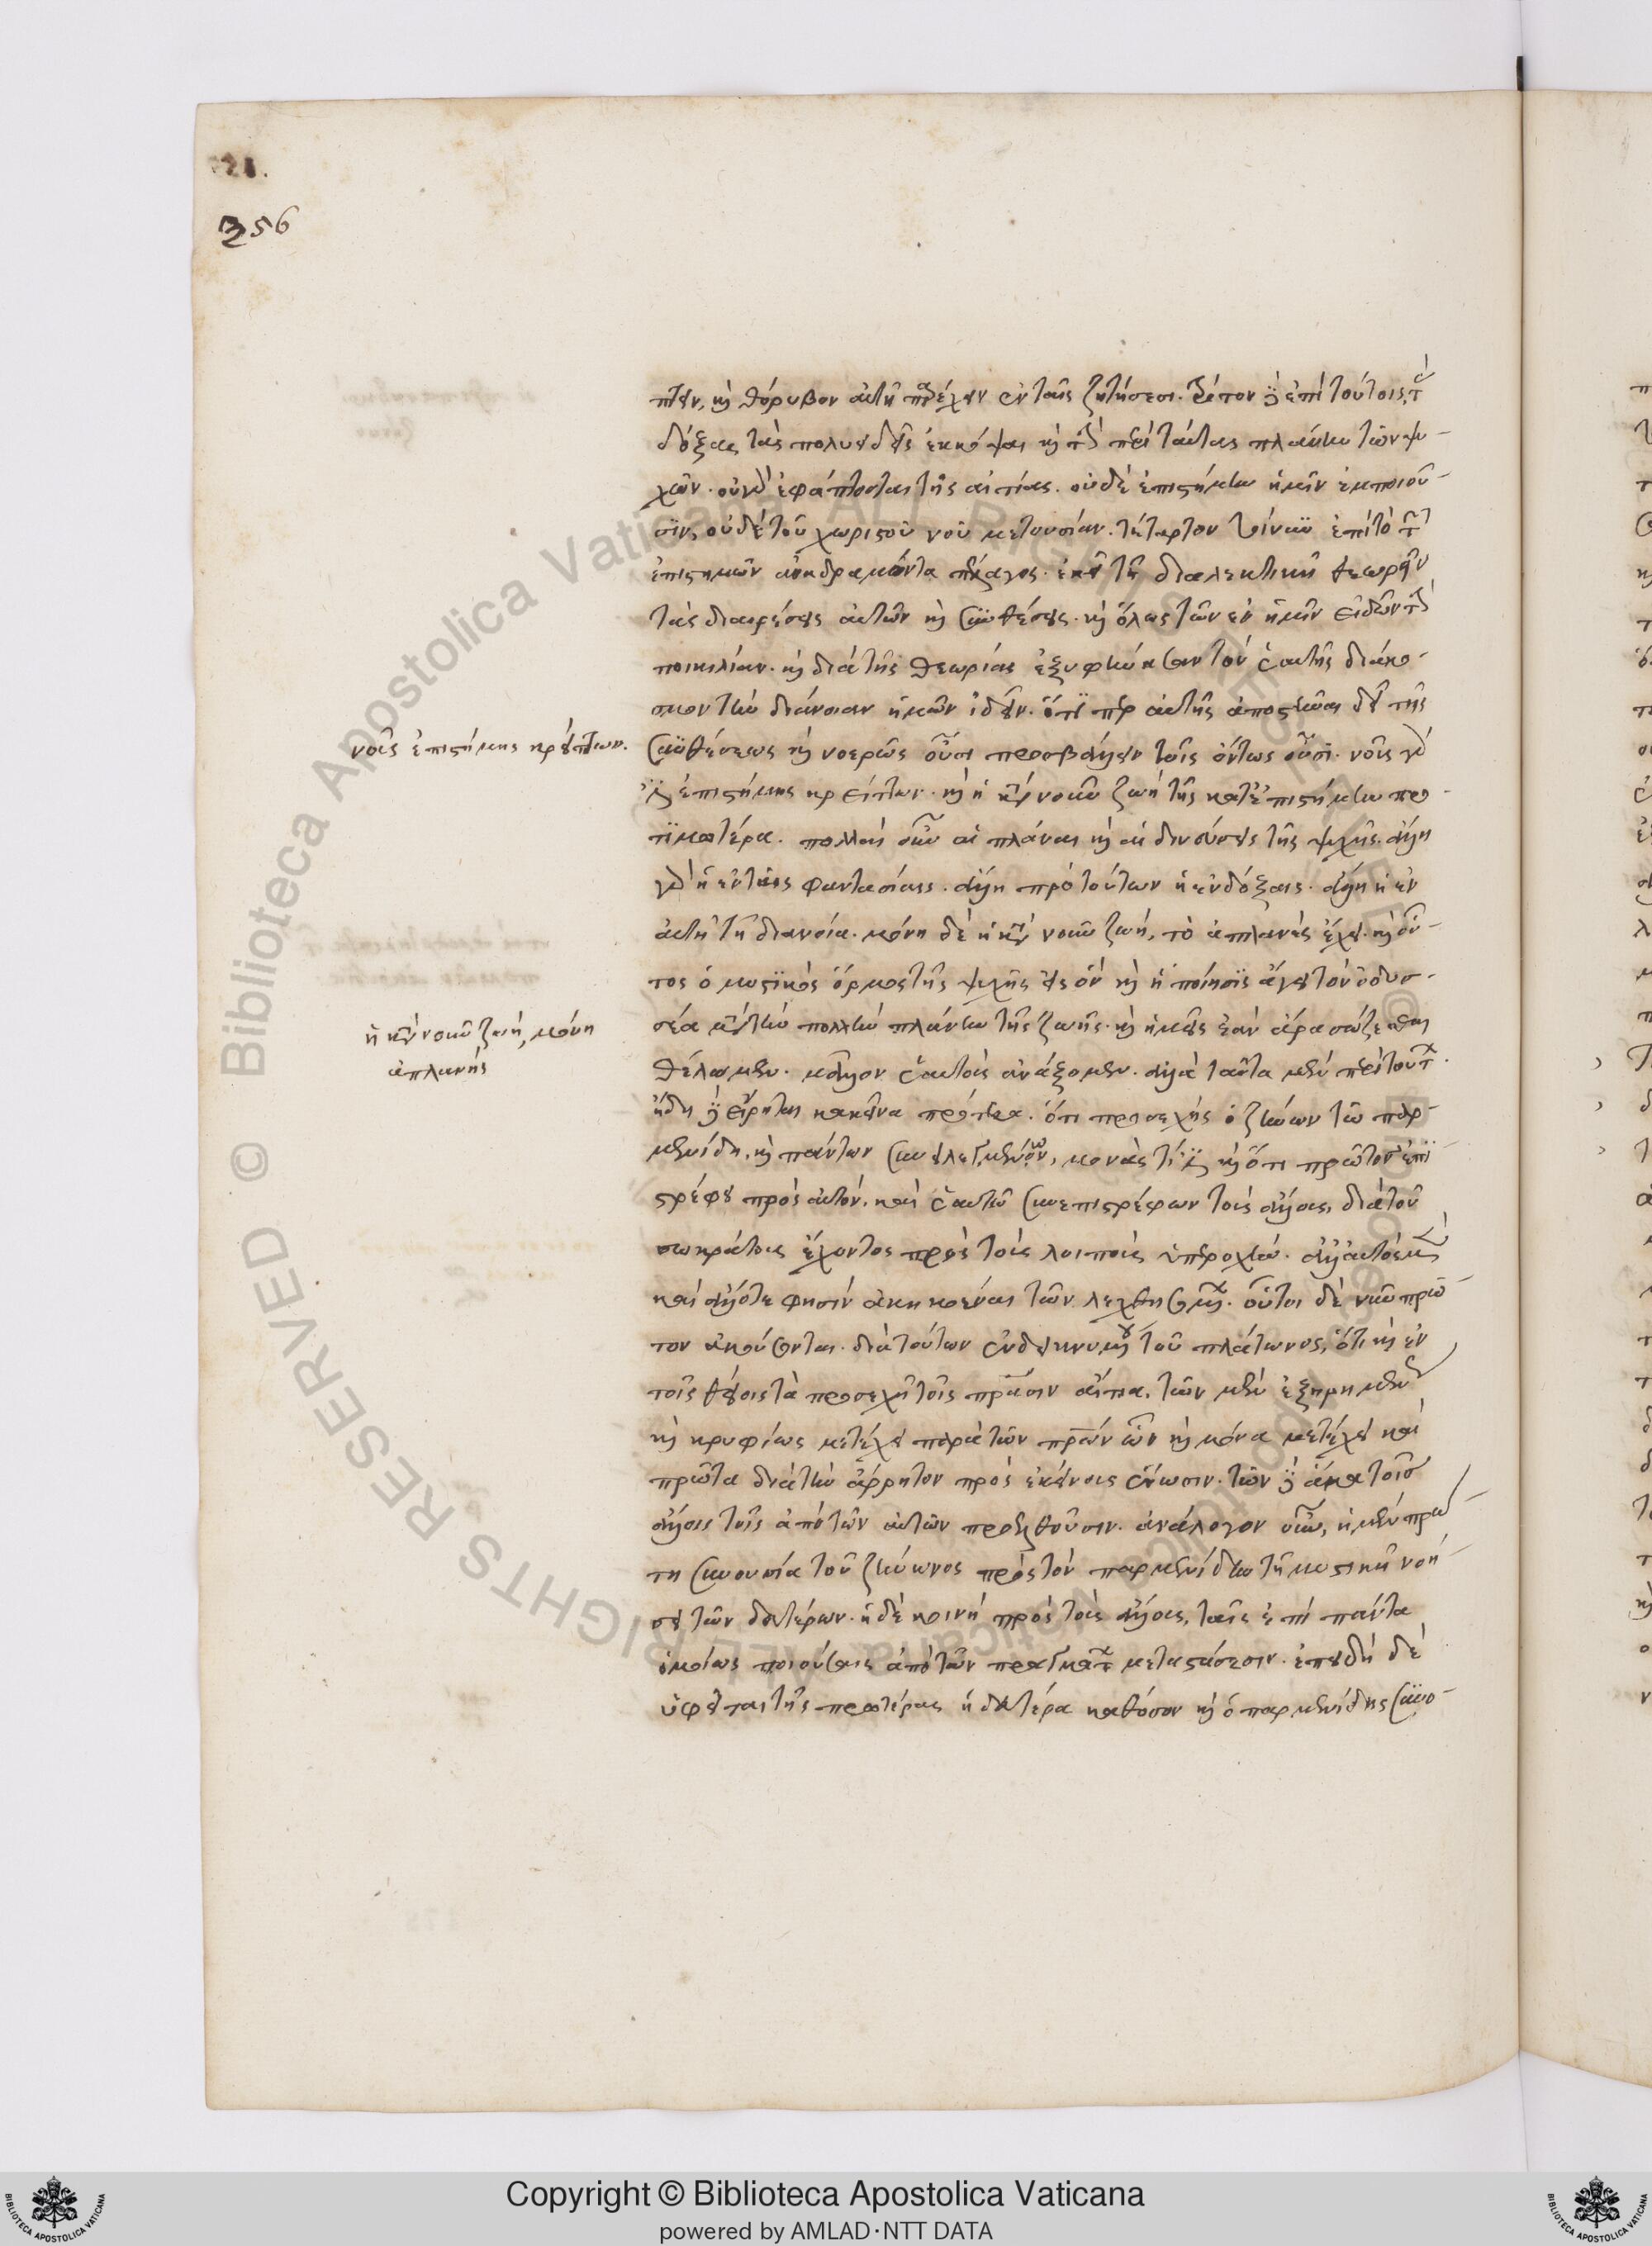 21.
356
πτειν, καὶ θόρυβον αὐτῇ παρέχειν ἐν ταῖς ζητήσεσι. τρίτον δὲ ἐπὶ τούτοις, τὰς
δόξας τὰς πολυειδεῖς ἐκκόψαι καὶ τὴν περὶ ταύτας πλάνην τῶν ψυ-
χῶν. οὐ γὰρ ἐφάπτονται τῆς αἰτίας. οὐδὲ ἐπιστήμην ἡμῖν ἐμποιοῦ-
σιν, οὐδὲ τοῦ χωριστοῦ νοῦ μετουσίαν. τέταρτον τοίνυν ἐπὶ τὸ τῶν
ἐπιστημῶν ἀναδραμόντα πέλαγος. ἐκεῖ τῇ διαλεκτικῇ θεωρεῖν
τὰς διαιρέσεις αὐτῶν καὶ συνθέσεις. καὶ ὅλως τῶν ἐν ἡμῖν εἰδῶν τὴν
ποικιλίαν. καὶ διὰ τῆς θεωρίας ἐξυφήνασαν τὸν ἑαυτῆς διάκο-
σμον τὴν διάνοιαν ἡμῶν ἰδεῖν. ὅτι παρ αὐτῆς ἀποστῆναι δεῖ τῆς
νοῦς ἐπιστήμης κρείττων.
συνθέσεως καὶ νοερῶς οὖσι προσβάλλειν τοῖς ὄντως οὖσι. νοῦς γὰρ
ἐστιν ἐπιστήμης κρείττων. καὶ ἡ κατὰ νοῦν ζωὴ τῆς κατ' ἐπιστήμην προ-
τιμοτέρα. πολλαὶ οὖν αἱ πλάναι καὶ αἱ δινεύσεις τῆς ψυχῆς. ἄλλη
γὰρ ἡ ἐν ταῖς φαντασίαις. ἄλλη πρὸ τούτων ἡ ἐν δόξαις. ἄλλη ἡ ἐν
αὐτῇ τῇ διανοία. μόνη δὲ ἡ κατὰ νοῦν ζωή, τὸ ἀπλανὲς ἔχει. καὶ οὗ-
τος ὁ μυστικὸς ὅρμος τῆς ψυχῆς εἰς ὃν καὶ ἡ ποίησις ἄγει τὸν ὀδυσ-
ἡ κατὰ νοῦν ζωή, μόνη
ἀπλανής
σέα μετὰ τὴν πολλὴν πλάνην τῆς ζωῆς. καὶ ἡμεῖς ἐὰν ἄρα σώζεσθαι
θέλωμεν. μᾶλλον ἑαυτοὺς ἀνάξομεν. ἀλλὰ ταῦτα μὲν περὶ τούτων.
ἤδη δὲ εἴρηται κἀκεῖνα πρότερα. ὅτι προσεχὴς ὁ ζήνων τῷ παρ-
μενίδῃ, καὶ πάντων συνειλεγμένων, μονάς τίς ἐστι καὶ ὅτι πρῶτον ἐπι
στρέφει πρὸς αὐτόν, καὶ ἑαυτῷ συνεπιστρέφων τοὺς ἄλλους, διὰ τοῦ
σωκράτους ἔχοντος πρὸς τοὺς λοιποὺς ὑπεροχήν. ἀλλ' αὐτὸς μὲν
καὶ ἄλλοτε φησὶν ἀκηκοέναι τῶν λεχθησομένων. οὗτοι δὲ νῦν πρῶ
τον ἀκούσονται. διὰ τούτων ἐνδεικνυμένου τοῦ πλάτωνος, ὅτι καὶ ἐν
τοῖς θείοις τὰ προσεχῆ τοῖς πρώτοις αἴτια, τῶν μὲν ἐξῃρημένως
καὶ κρυφίως μετέχει παρὰ τῶν πρώτων ὧν καὶ μόνα μετέχει καὶ
πρῶτα διὰ τὴν ἄρρητον πρὸς ἐκείνους ἕνωσιν. τῶν δὲ ἅμα τοῖς
ἄλλοις τοῖς ἀπὸ τῶν αὐτῶν προελθοῦσιν. ἀνάλογον οὖν, ἡ μὲν πρώ
τη συνουσία τοῦ ζήνωνος πρὸς τὸν παρμενίδην τῇ μυστικῇ νοή
σει τῶν δευτέρων. ἡ δὲ κοινὴ πρὸς τοὺς ἄλλους, ταῖς ἐπὶ πάντα
ὁμοίως ποιούσαις ἀπὸ τῶν πραγμάτων μεταστάσεσιν. ἐπειδὴ δὲ
ὑφεῖται τῆς προτέρας ἡ δευτέρα καθόσον καὶ ὁ παρμενίδης συνο-
Copyright © Biblioteca Apostolica Vaticana
powered by AMLAD·NTT DATA